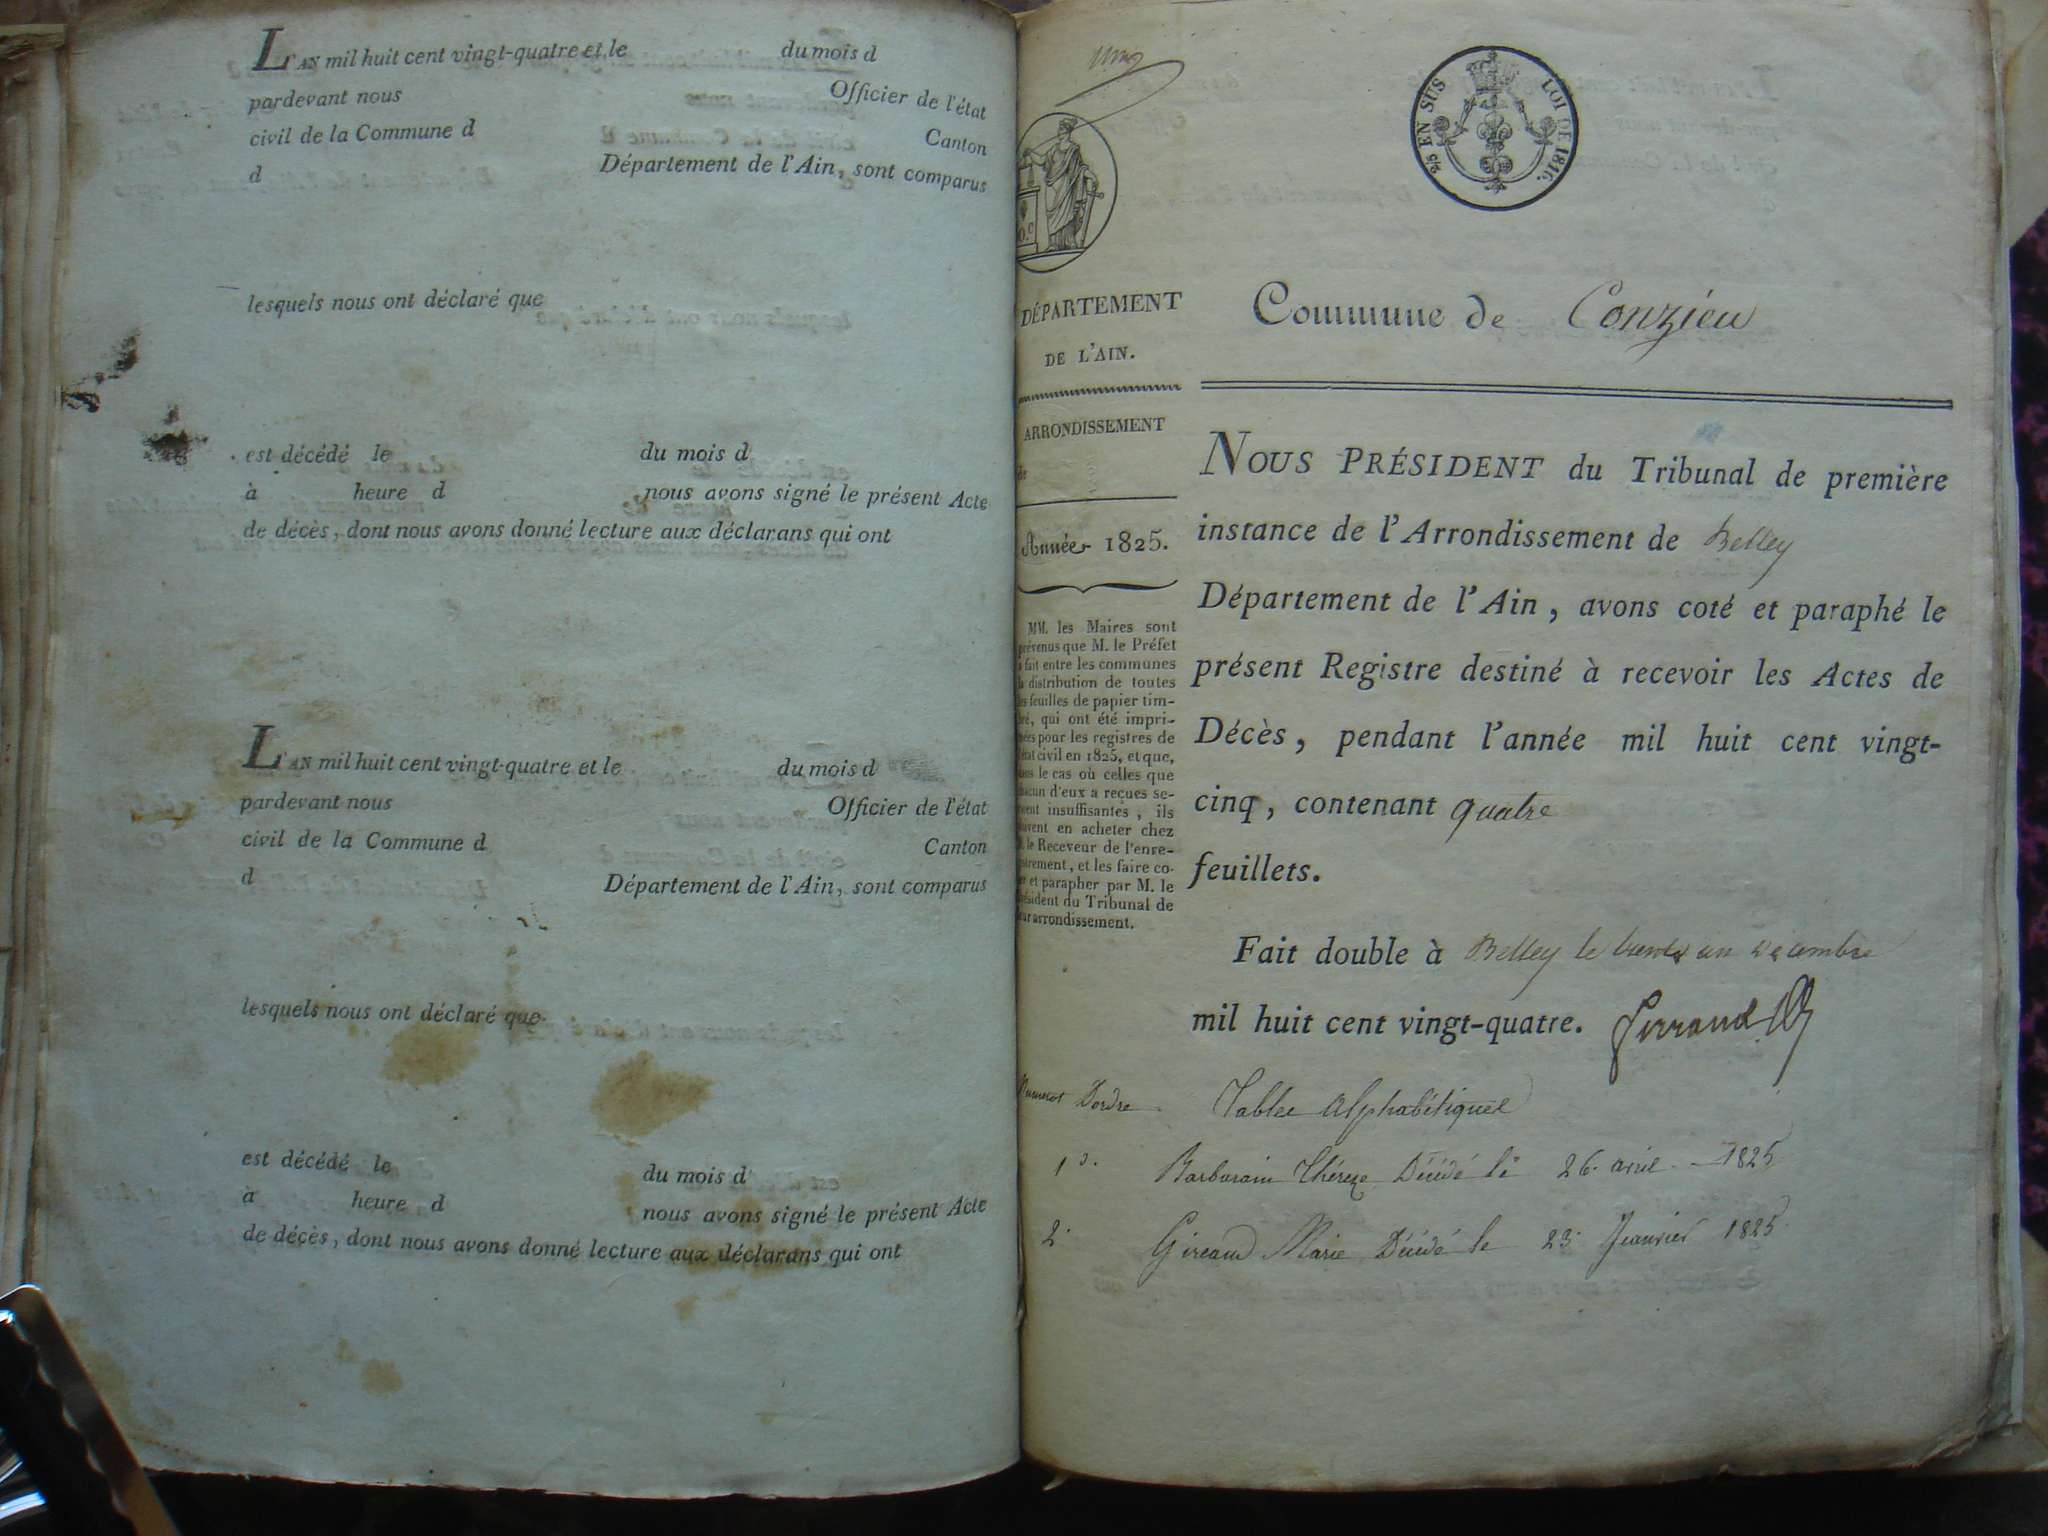 L'AN mil huit cent vingt-quatre et le du mois d
pardevant nous Officier de l'état
civil de la Commune d Canton
d Département de l'Ain, sont comparus
lesquels nous ont déclaré que
est décédé le du mois d
à heure d nous avons signé le présent Acte
de décès, dont nous avons donné lecture aux déclarans qui ont
L'AN mil huit cent vingt-quatre et le du mois d
pardevant nous Officier de l'état
civil de la Commune d Canton
d Département de l'Ain, sont comparus
lesquels nous ont déclaré que
est décédé le du mois d
à heure d nous avons signé le présent Acte
de décès, dont nous avons donné lecture aux déclarans qui ont
EN SUS LOI DE 1816.
DÉPARTEMENT
DE L'AIN.
ARRONDISSEMENT
de
Année 1825.
MM. les Maires sont
prévenus que M. le Préfet
a fait entre les communes
la distribution de toutes
les feuilles de papier tim-
bré, qui ont été impri-
mées pour les registres de
l'état civil en 1825, et que,
dans le cas où celles que
chacun d'eux a reçues se-
roient insuffisantes, ils
peuvent en acheter chez
M. le Receveur de l'enre-
gistrement, et les faire co-
ter et parapher par M. le
Président du Tribunal de
leur arrondissement.
Commune de Conzieu
NOUS PRÉSIDENT du Tribunal de première
instance de l'Arrondissement de Belley
Département de l'Ain, avons coté et paraphé le
présent Registre destiné à recevoir les Actes de
Décès, pendant l'année mil huit cent vingt-
cinq, contenant quatre
feuillets.
Fait double à Belley le trente un décembre
mil huit cent vingt-quatre.
Numerot Dordre Table Alphabétique
1 Barbarain Thérèze Décédé le 26 avril 1825
2 Gireaud Marie Décédé le 23 Jeanvier 1825